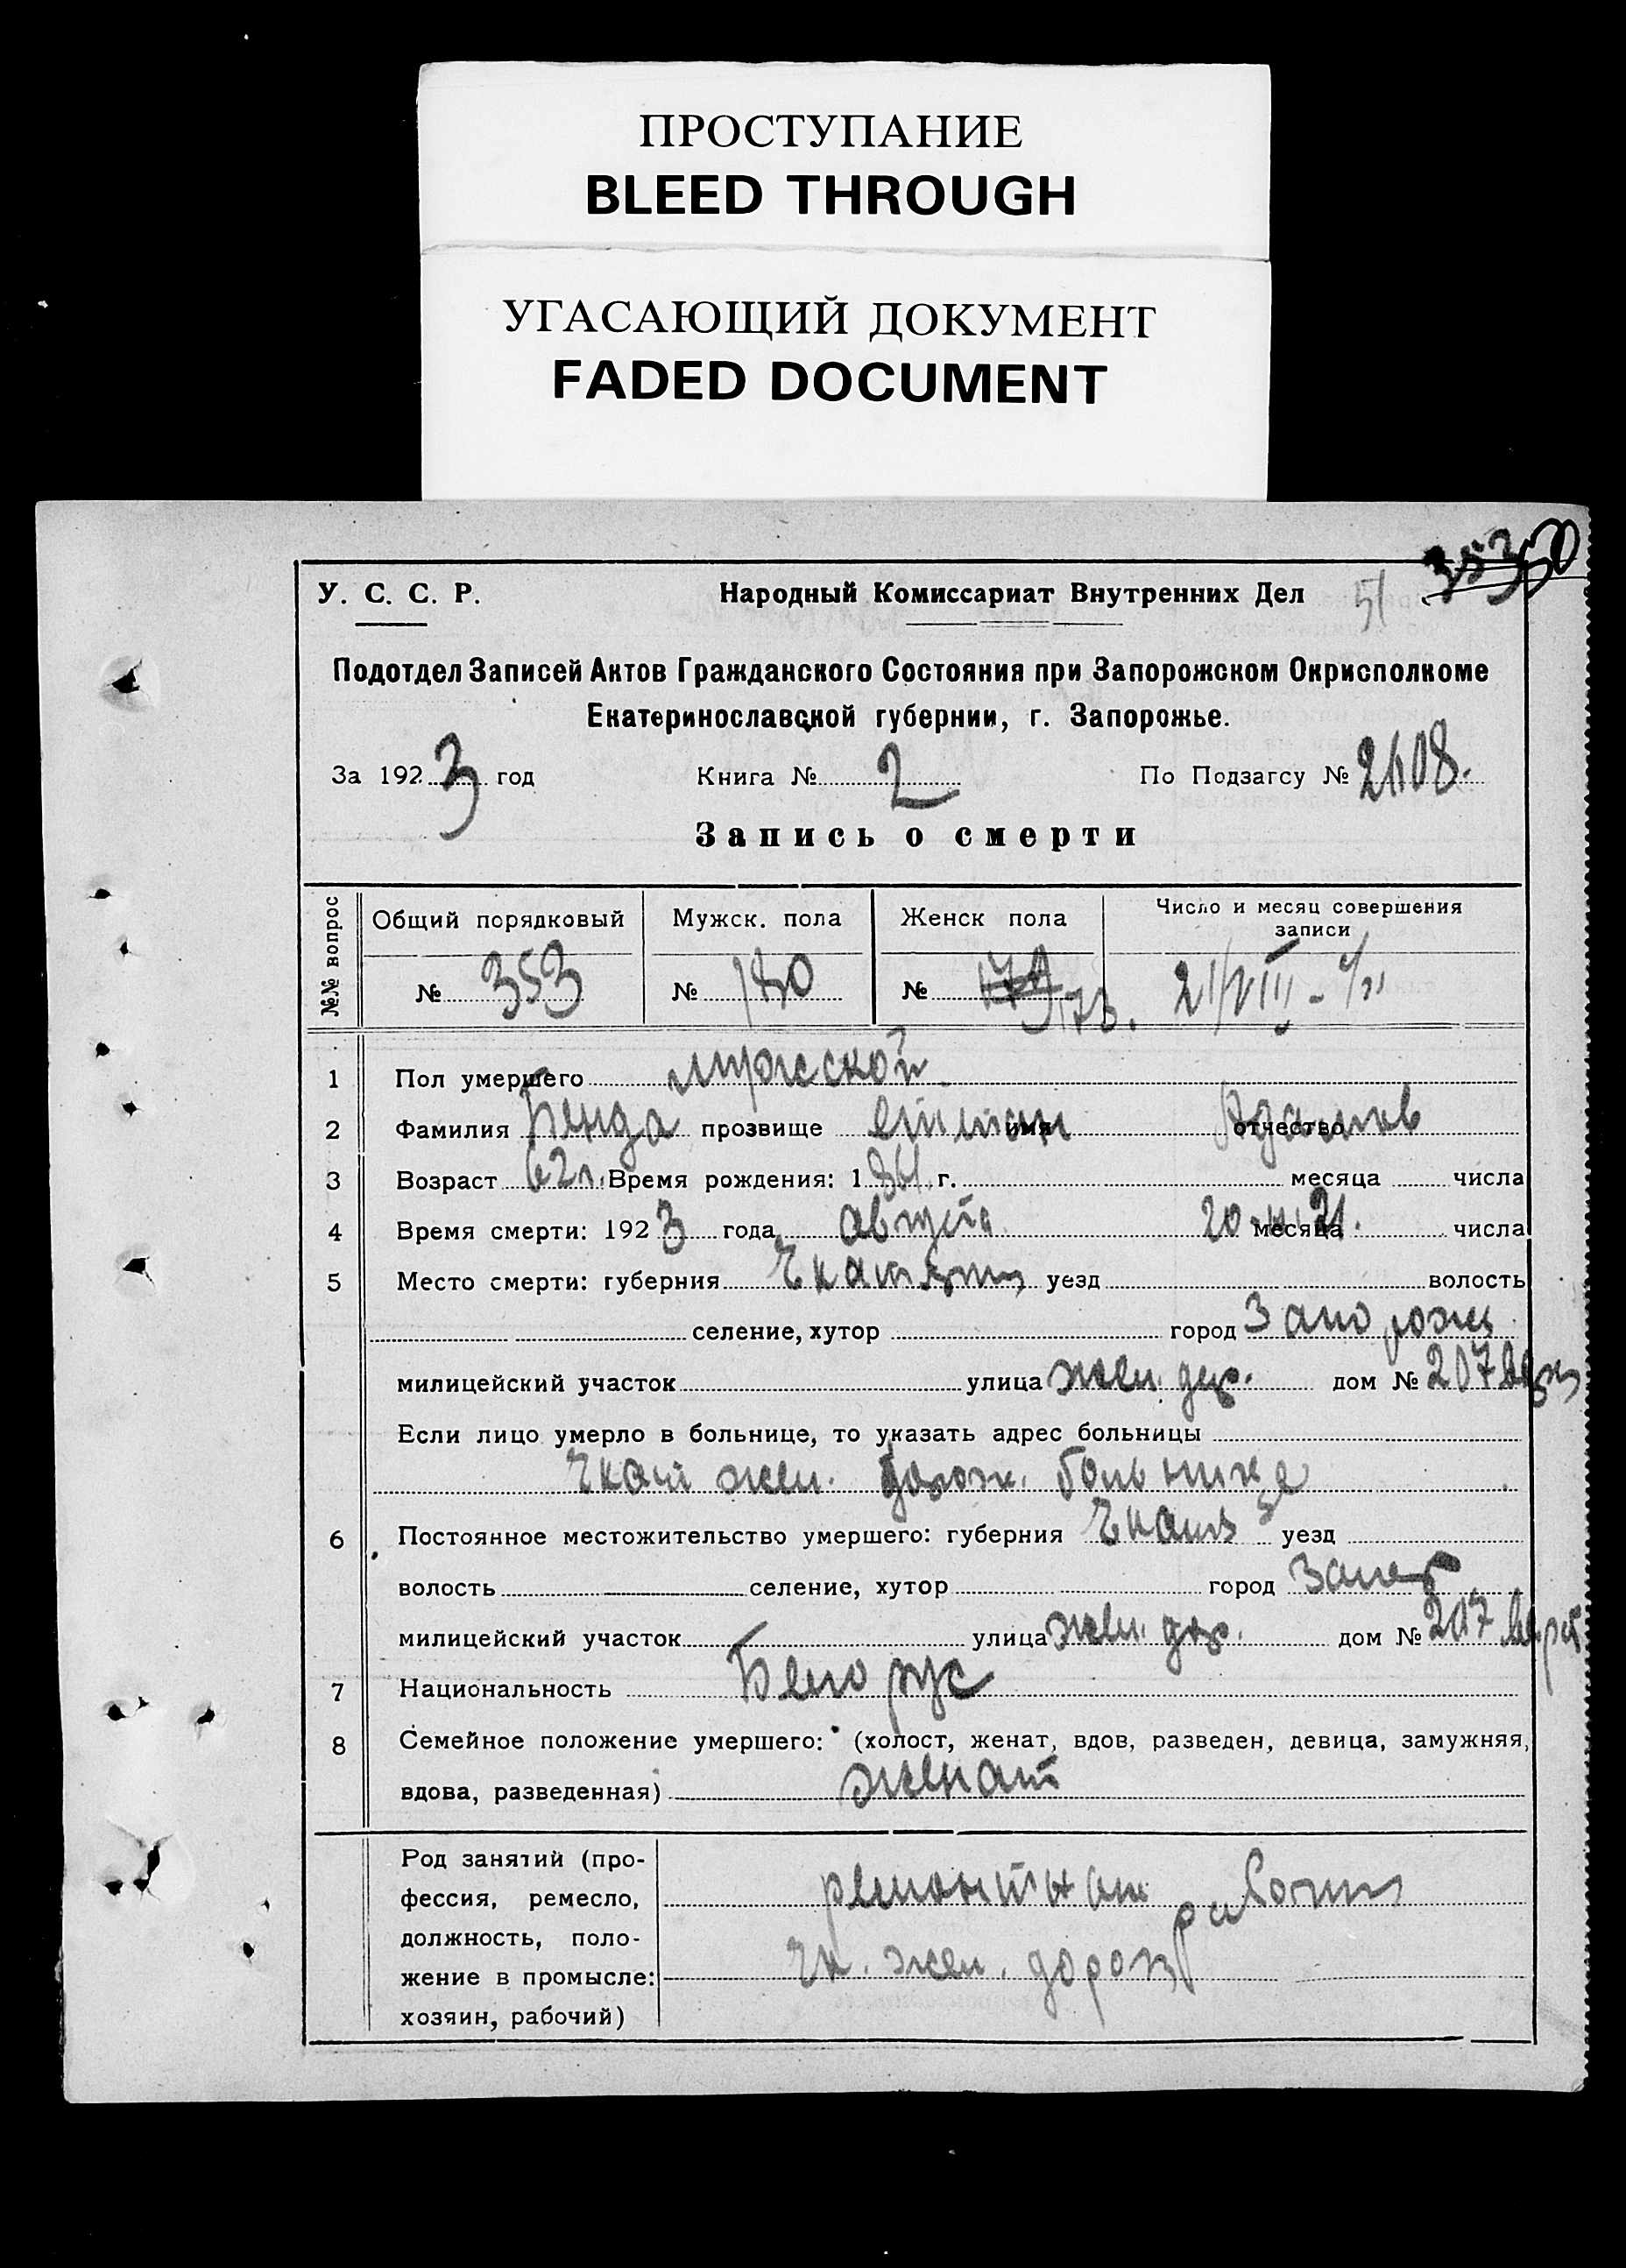 ПРОСТУПАНИЕ
BLEED THROUGH
УГАСАЮЩИЙ ДОКУМЕНТ
FADED DOCUMENT
353 50
У. С. С. Р. Народный Комиссариат Внутренних Дел 51
Подотдел Записей Актов Гражданского Состояния при Запорожском Окрисполкоме
Екатеринославской губернии, г. Запорожье.
За 1923 год Книга № 2 По Подзагсу №
Запись о смерти
№№ вопрос Общий порядковый Мужск. пола Женск пола Число и месяц совершения
записи
№ 353 № 180 № 173. 21/VIII
1 Пол умершего мужской
2 Фамилия Бенда прозвище имя отчество
3 Возраст 62 л. Время рождения: 1 г. месяца числа
4 Время смерти: 1923 года августа 20 месяца числа
5 Место смерти: губерния уезд волость
селение, хутор город Запорож
милицейский участок улица жел. дор. дом № 207
Если лицо умерло в больнице, то указать адрес больницы
Екат жел. дорож. больнице
6 Постоянное местожительство умершего: губерния уезд
волость селение, хутор город
милицейский участок улица жел. дор. дом № 207 верст
7 Национальность Белорус
8 Семейное положение умершего: (холост, женат, вдов, разведен, девица, замужняя,
вдова, разведенная) женат
Род занятий (про-
фессия, ремесло,
должность, поло-
жение в промысле:
хозяин, рабочий)
Ек. жел. дорог